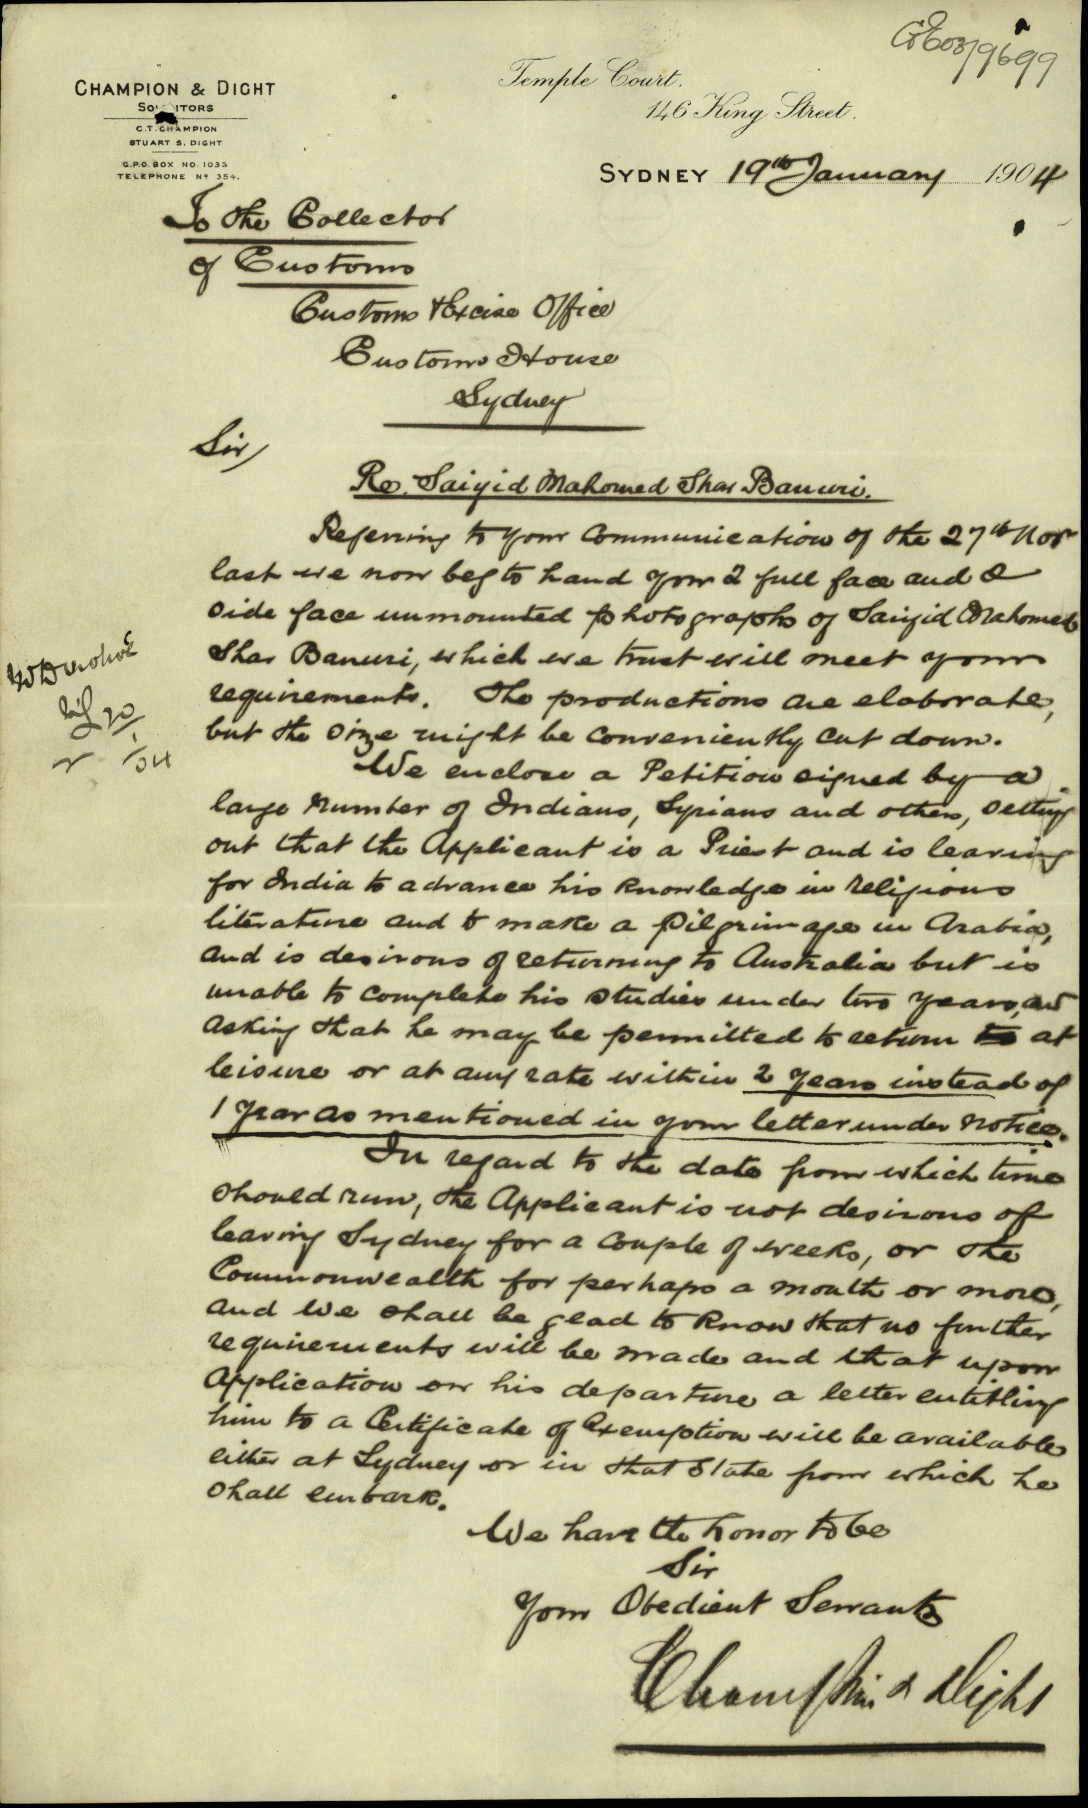 CHAMPION & DIGHT
SOLICITORS
C.T. CHAMPION
STUART S. DIGHT
G.P.O. BOX NO. 1033
TELEPHONE No 354.
Temple Court.
146 King Street.
SYDNEY 19th January 1904
To the Collector
of Customs
Customs & Excise Office
Customs House
Sydney
Sir,
Re. Saiyid Mahomed Shar Banuri.
Referring to your communication of the 27th Nov
last we now beg to hand you 2 full face and 2
side face unmounted photographs of Saiyid Mahomed
Shar Banuri, which we trust will meet your
requirements. The productions are elaborate,
but the size might be conveniently cut down.
We enclose a Petition signed by a
large number of Indians, Syrians and others, setting
out that the Applicant is a Priest and is leaving
for India to advance his knowledge in religious
literature and to make a pilgrimage in Arabia,
and is desirous of returning to Australia but is
unable to complete his studies under two years, and
asking that he may be permitted to return to at
leisure or at any rate within 2 years instead of
1 year as mentioned in your letter under notice.
In regard to the date from which time
should run, the Applicant is not desirous of
leaving Sydney for a couple of weeks, or the
Commonwealth for perhaps a month or more,
and we shall be glad to know that no further
requirements will be made and that upon
application on his departure a letter entitling
him to a Certificate of Exemption will be available
either at Sydney or in that State from which he
shall embark.
We have the honor to be
Sir
Your Obedient Servants
Champion & Dight
20/1/04